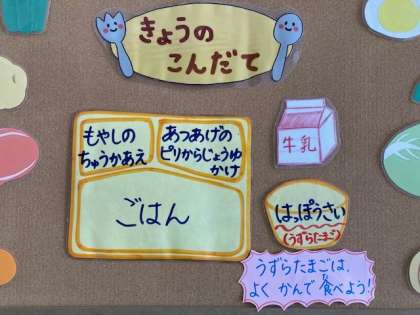 きょうの
こんだて
もやしの
ちゅうかあえ
あつあげの
ピリからじょうゆ
かけ
牛乳
ごはん
はっぽうさい
(うずらたまご)
うずらたまごは、
よく かんで 食べよう!